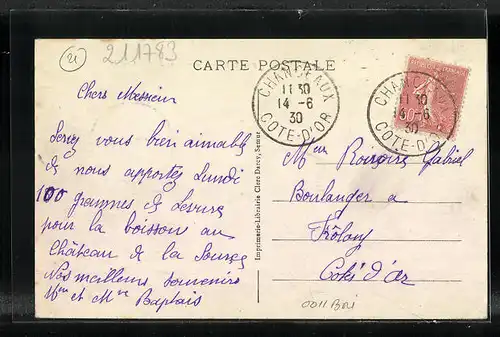 21
211783
CARTE POSTALE
CHANCEAUX
1130
14 -6
30
COTE-D'OR
CHANCEAUX
1130
14 -6
30
COTE-D'OR
Chers Messieurs
Serez vous bien aimable
de nous apporter Lundi
100 grammes de Levure
pour la boisson au
Château de la Source
Nos meilleurs souvenirs
Mr et Mme Baptais
Imprimerie-Librairie Clère Darcy, Semur
Gabriel
Boulanger a
Côte d'Or
0011Boi